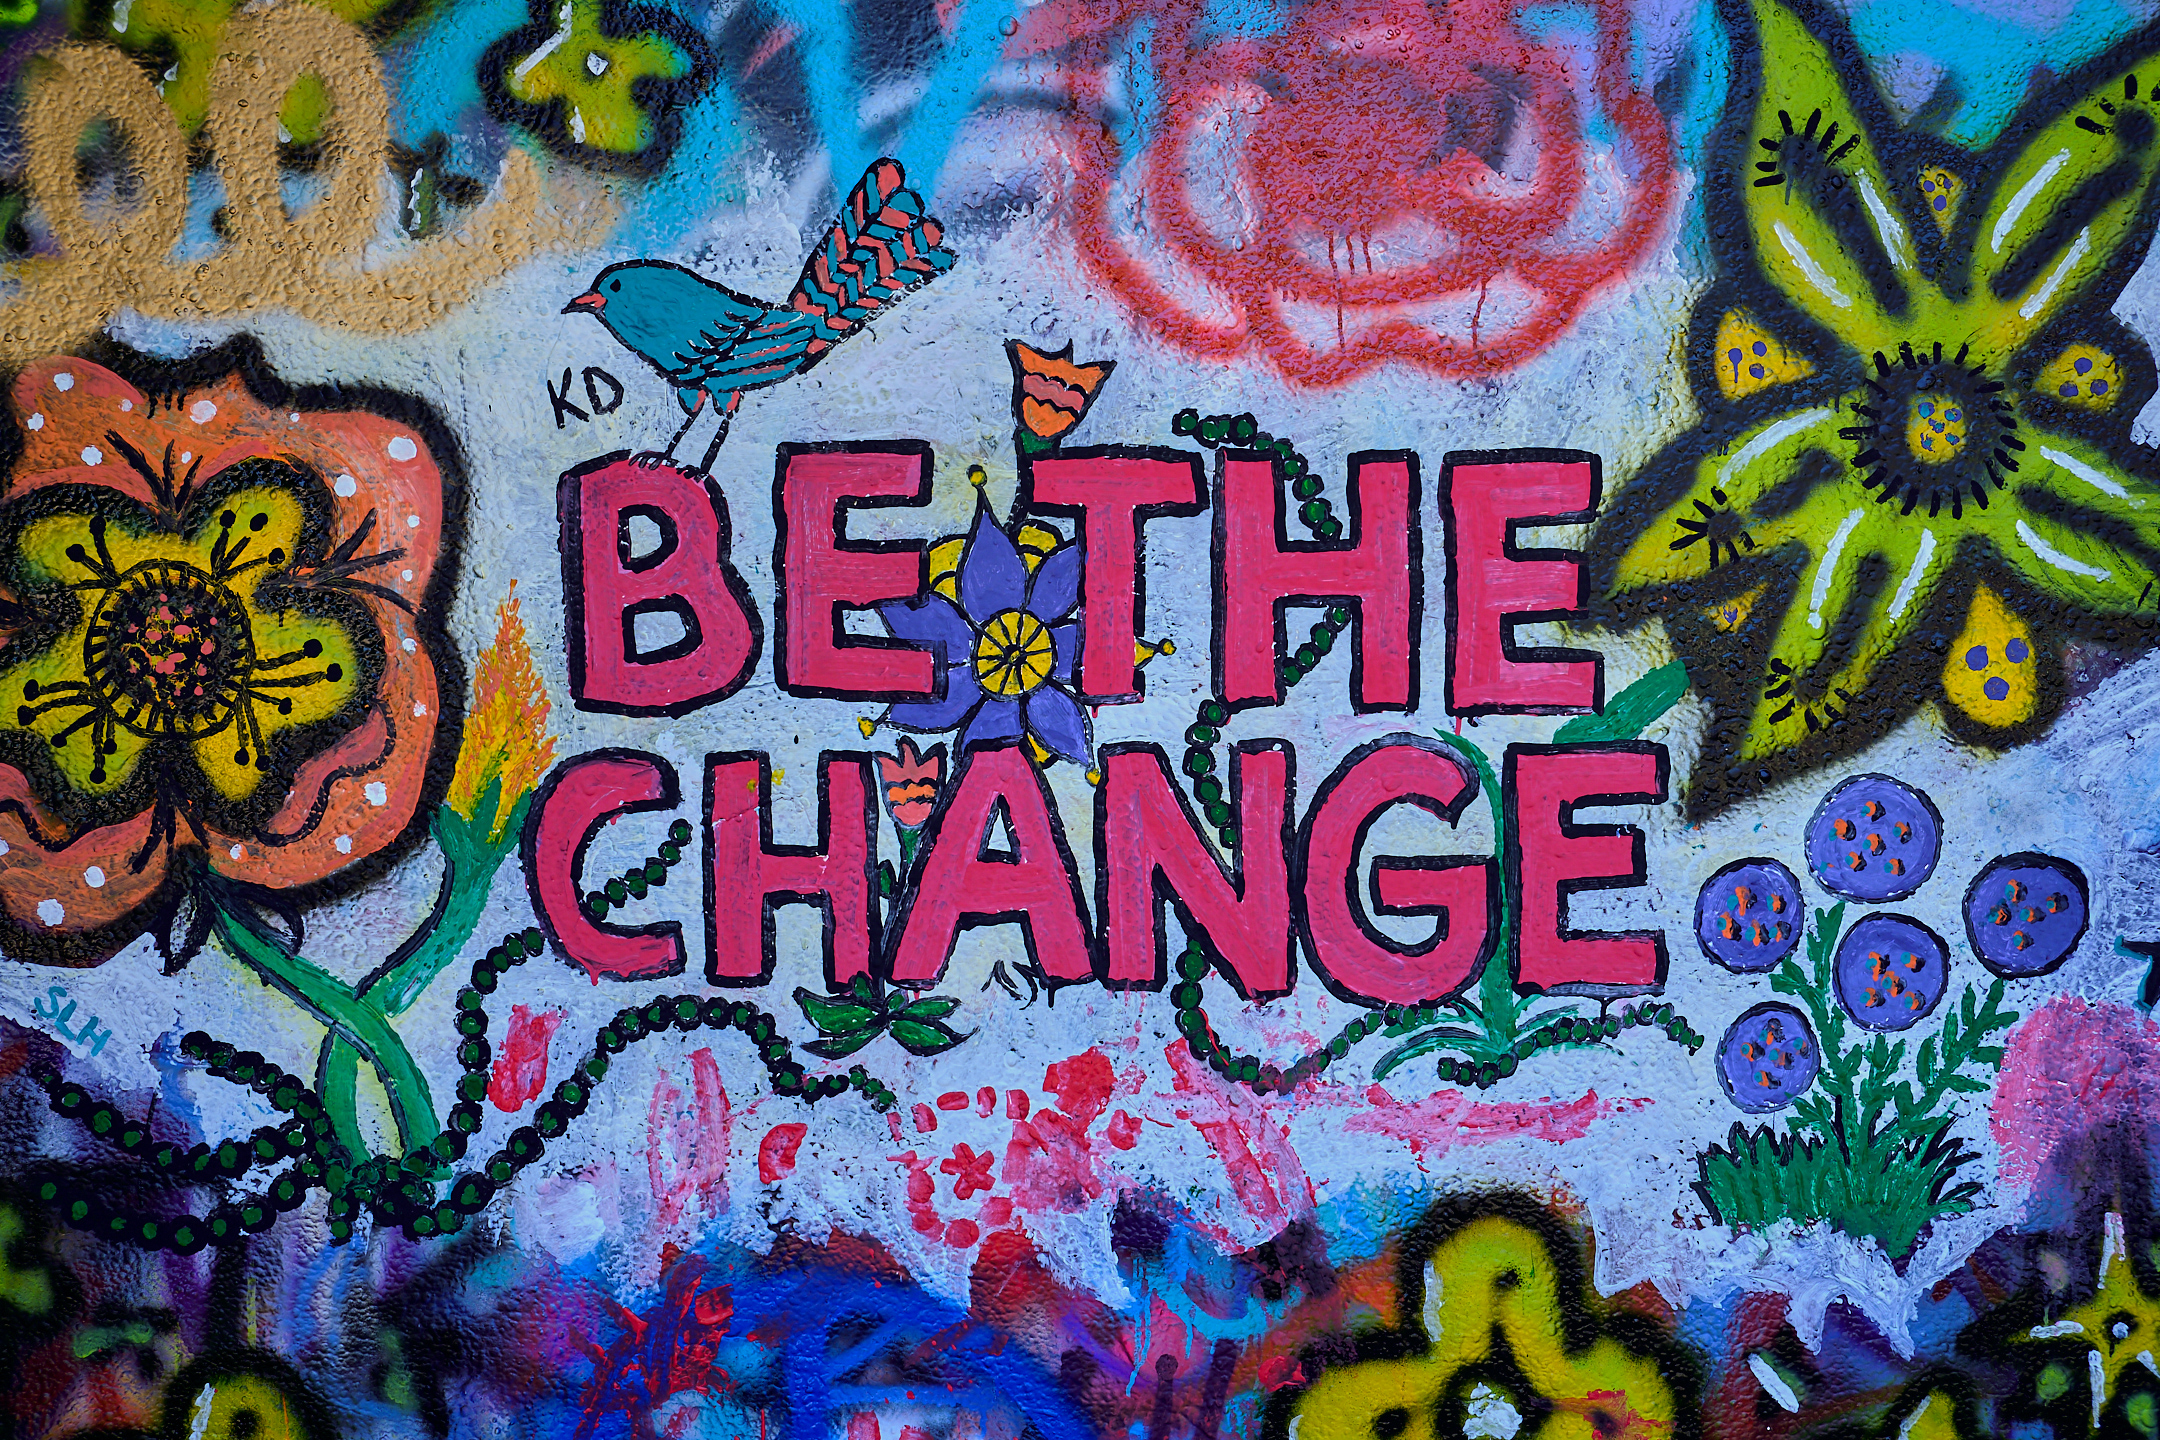 KD
BE THE
CHANGE
SLH